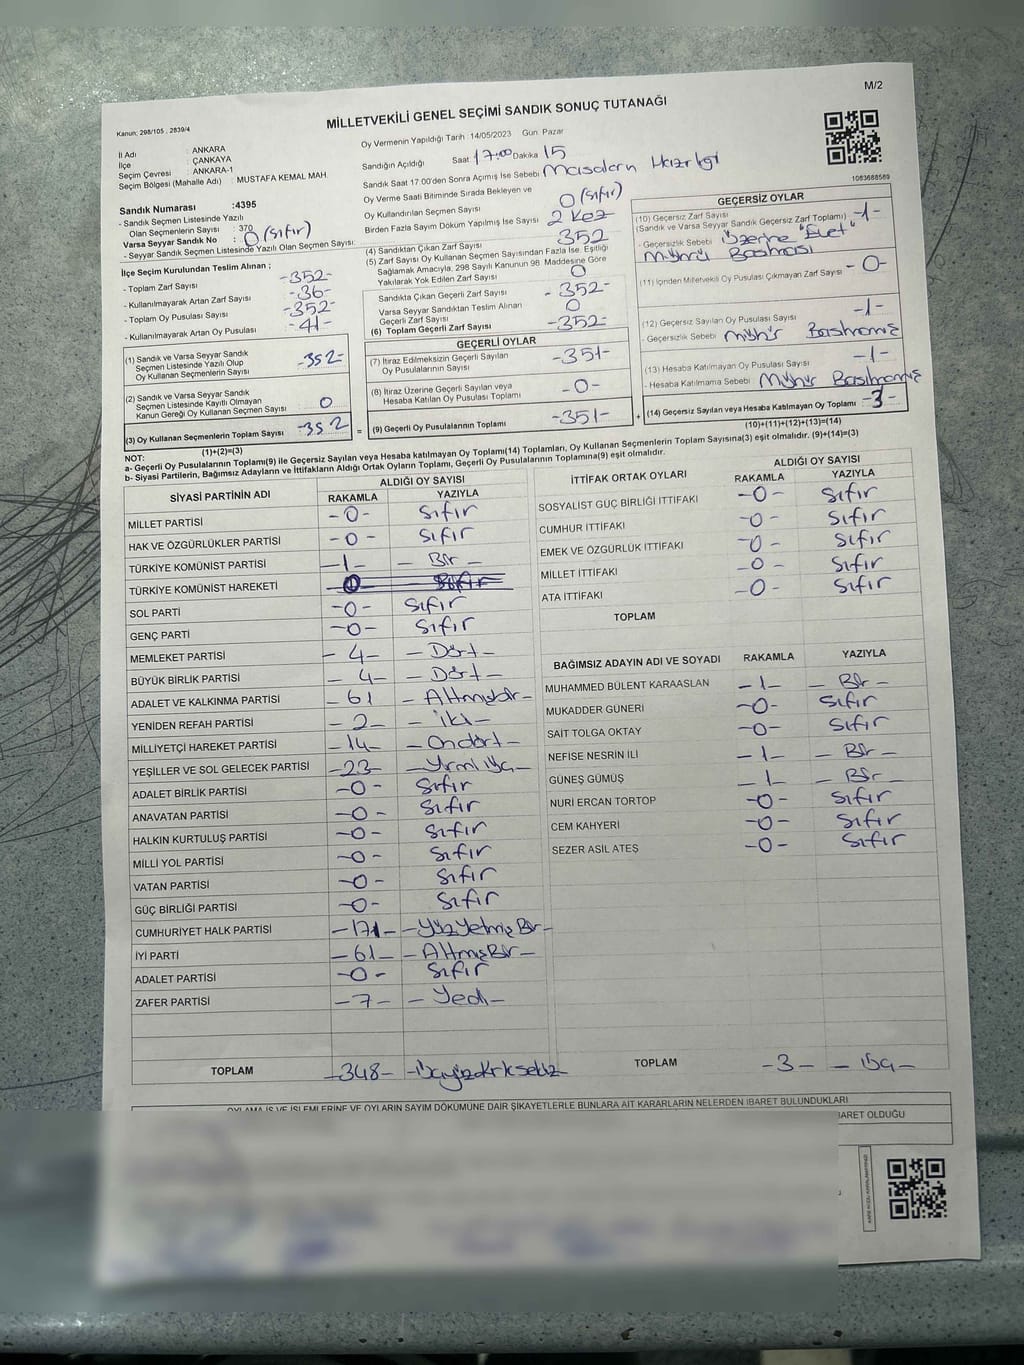 M/2
MİLLETVEKİLİ GENEL SEÇİMİ SANDIK SONUÇ TUTANAĞI
Kanun; 298/105 , 2839/4
İl Adı : ANKARA
İlçe : ÇANKAYA
Seçim Çevresi : ANKARA-1
Seçim Bölgesi (Mahalle Adı) : MUSTAFA KEMAL MAH.
Sandık Numarası :4395
- Sandık Seçmen Listesinde Yazılı
Olan Seçmenlerin Sayısı : 370
Varsa Seyyar Sandık No : 0 (sıfır)
- Seyyar Sandık Seçmen Listesinde Yazılı Olan Seçmen Sayısı:
İlçe Seçim Kurulundan Teslim Alınan ;
- Toplam Zarf Sayısı -352-
- Kullanılmayarak Artan Zarf Sayısı -36-
- Toplam Oy Pusulası Sayısı -352-
- Kullanılmayarak Artan Oy Pusulası -41-
(1) Sandık ve Varsa Seyyar Sandık
Seçmen Listesinde Yazılı Olup
Oy Kullanan Seçmenlerin Sayısı -352-
(2) Sandık ve Varsa Seyyar Sandık
Seçmen Listesinde Kayıtlı Olmayan
Kanun Gereği Oy Kullanan Seçmen Sayısı 0
(3) Oy Kullanan Seçmenlerin Toplam Sayısı -352-
(1)+(2)=(3)
Oy Vermenin Yapıldığı Tarih :14/05/2023 Gün: Pazar
Sandığın Açıldığı Saat: 17:00 Dakika 15
Sandık Saat 17.00'den Sonra Açılmış İse Sebebi Masaların Hazırlığı
Oy Verme Saati Bitiminde Sırada Bekleyen ve
Oy Kullandırılan Seçmen Sayısı 0 (sıfır)
Birden Fazla Sayım Döküm Yapılmış İse Sayısı 2 kez
(4) Sandıktan Çıkan Zarf Sayısı 352
(5) Zarf Sayısı Oy Kullanan Seçmen Sayısından Fazla İse, Eşitliği
Sağlamak Amacıyla, 298 Sayılı Kanunun 98. Maddesine Göre
Yakılarak Yok Edilen Zarf Sayısı 0
Sandıkta Çıkan Geçerli Zarf Sayısı -352-
Varsa Seyyar Sandıktan Teslim Alınan
Geçerli Zarf Sayısı 0
(6) Toplam Geçerli Zarf Sayısı -352-
GEÇERLİ OYLAR
(7) İtiraz Edilmeksizin Geçerli Sayılan
Oy Pusulalarının Sayısı -351-
(8) İtiraz Üzerine Geçerli Sayılan veya
Hesaba Katılan Oy Pusulası Toplamı -0-
= (9) Geçerli Oy Pusulalarının Toplamı -351- +
1083688589
GEÇERSİZ OYLAR
(10) Geçersiz Zarf Sayısı
(Sandık ve Varsa Seyyar Sandık Geçersiz Zarf Toplamı) -1-
- Geçersizlik Sebebi Üzerine "Evet"
Mührü Basması
(11) İçinden Milletvekili Oy Pusulası Çıkmayan Zarf Sayısı -0-
(12) Geçersiz Sayılan Oy Pusulası Sayısı -1-
- Geçersizlik Sebebi Mühür Basılmamış
(13) Hesaba Katılmayan Oy Pusulası Sayısı -1-
- Hesaba Katılmama Sebebi Mühür Basılmamış
(14) Geçersiz Sayılan veya Hesaba Katılmayan Oy Toplamı -3-
(10)+(11)+(12)+(13)=(14)
NOT:
a- Geçerli Oy Pusulalarının Toplamı(9) ile Geçersiz Sayılan veya Hesaba katılmayan Oy Toplamı(14) Toplamları, Oy Kullanan Seçmenlerin Toplam Sayısına(3) eşit olmalıdır. (9)+(14)=(3)
b- Siyasi Partilerin, Bağımsız Adayların ve İttifakların Aldığı Ortak Oyların Toplamı, Geçerli Oy Pusulalarının Toplamına(9) eşit olmalıdır.
SİYASİ PARTİNİN ADI
ALDIĞI OY SAYISI
RAKAMLA YAZIYLA
MİLLET PARTİSİ -0- Sıfır
HAK VE ÖZGÜRLÜKLER PARTİSİ -0- Sıfır
TÜRKİYE KOMÜNİST PARTİSİ -1- Bir -
TÜRKİYE KOMÜNİST HAREKETİ 0 Sıfır
SOL PARTİ -0- Sıfır
GENÇ PARTİ -0- Sıfır
MEMLEKET PARTİSİ -4- -Dört-
BÜYÜK BİRLİK PARTİSİ -4- -Dört-
ADALET VE KALKINMA PARTİSİ -61 -Altmışbir-
YENİDEN REFAH PARTİSİ -2- -İki-
MİLLİYETÇİ HAREKET PARTİSİ -14- -Ondört-
YEŞİLLER VE SOL GELECEK PARTİSİ -23- -Yirmi üç-
ADALET BİRLİK PARTİSİ -0- Sıfır
ANAVATAN PARTİSİ -0- Sıfır
HALKIN KURTULUŞ PARTİSİ -0- Sıfır
MİLLİ YOL PARTİSİ -0- Sıfır
VATAN PARTİSİ -0- Sıfır
GÜÇ BİRLİĞİ PARTİSİ -0- Sıfır
CUMHURİYET HALK PARTİSİ -171- -YüzYetmişBir-
İYİ PARTİ -61- -AltmışBir-
ADALET PARTİSİ -0- Sıfır
ZAFER PARTİSİ -7- -Yedi-
TOPLAM -348- -Üçyüzkırksekiz
İTTİFAK ORTAK OYLARI
ALDIĞI OY SAYISI
RAKAMLA YAZIYLA
SOSYALİST GÜÇ BİRLİĞİ İTTİFAKI -0- Sıfır
CUMHUR İTTİFAKI -0- Sıfır
EMEK VE ÖZGÜRLÜK İTTİFAKI -0- Sıfır
MİLLET İTTİFAKI -0- Sıfır
ATA İTTİFAKI -0- Sıfır
TOPLAM
BAĞIMSIZ ADAYIN ADI VE SOYADI RAKAMLA YAZIYLA
MUHAMMED BÜLENT KARAASLAN -1- -Bir-
MUKADDER GÜNERİ -0- Sıfır
SAİT TOLGA OKTAY -0- Sıfır
NEFİSE NESRİN İLİ -1- -Bir-
GÜNEŞ GÜMÜŞ -1- -Bir-
NURİ ERCAN TORTOP -0- Sıfır
CEM KAHYERİ -0- Sıfır
SEZER ASİL ATEŞ -0- Sıfır
TOPLAM -3- -Üç-
OYLAMA İŞ VE İŞLEMLERİNE VE OYLARIN SAYIM DÖKÜMÜNE DAİR ŞİKAYETLERLE BUNLARA AİT KARARLARIN NELERDEN İBARET BULUNDUKLARI
İBARET OLDUĞU